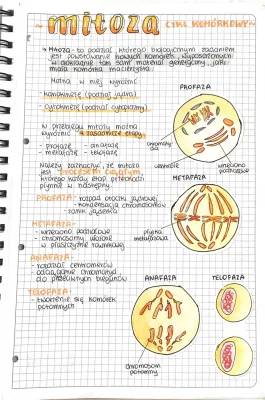 ~mitoza~ CYKL KOMÓRKOWY~
• Mitoza - to podział, którego biologicznym zadaniem
jest powstawanie nowych komórek, wyposażonych
w dokładnie ten sam materiał genetyczny, jaki
miała komórka macierzysta.
Można w niej wyróżnić
- kariokinezę (podział jądra)
- cytokinezę (podział cytoplazmy)
PROFAZA
W przebiegu mitozy można
wyróżnić 4 zasadnicze etapy:
- profazę - anafazę
- metafazę - telofazę
chromatydy
centriole
wrzeciono
podziałowe
Należy zaznaczyć, że mitoza
jest procesem ciągłym,
którego każdy etap przechodzi
płynnie w następny.
METAFAZA
PROFAZA: - rozpad otoczki jądrowej
- kondensacja chromosomów
- zanik jąderka
METAFAZA:
- wrzeciono podziałowe
- chromosomy ułożone
w płaszczyźnie równikowej
płytka
metafazowa
ANAFAZA:
- rozdział centromerów
- odciąganie chromatyd
do przeciwnych biegunów
ANAFAZA
TELOFAZA
TELOFAZA:
- tworzenie się komórek
potomnych
chromosom
potomny